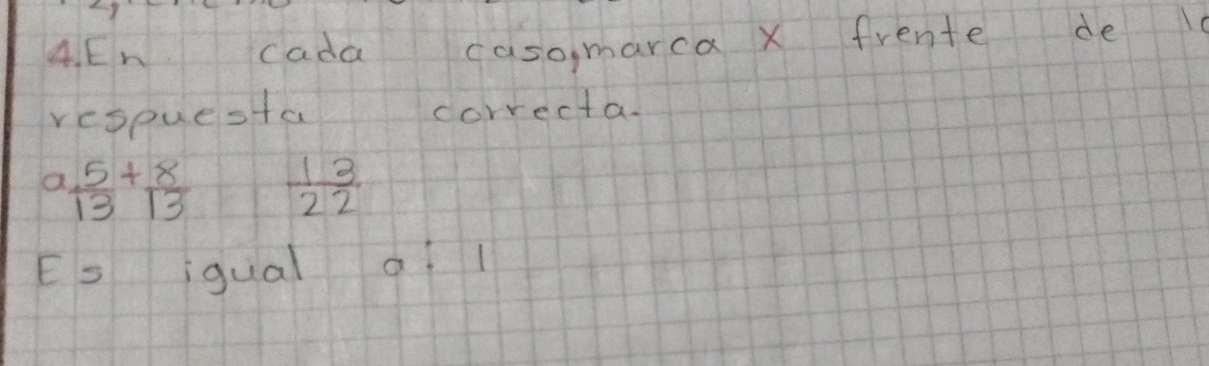 4. En cada caso, marca x frente de
respuesta correcta.
a. 5/13 + 8/13 13/22
Es igual a: 1